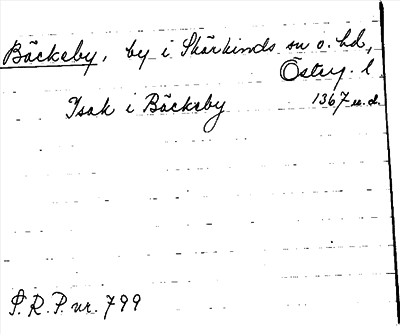 Bäckeby, by i Skärkinds sn o. hd,
Östg. l.
Isak i Bäckeby 1367 u.d.
S.R.P. nr. 799